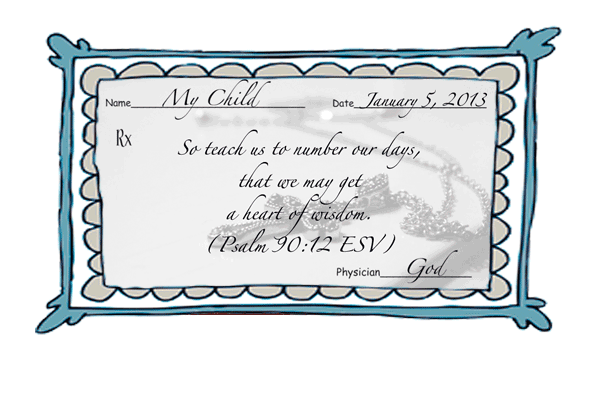 Name My Child Date January 5, 2013
Rx
So teach us to number our days,
that we may get
a heart of wisdom.
(Psalm 90:12 ESV)
Physician God